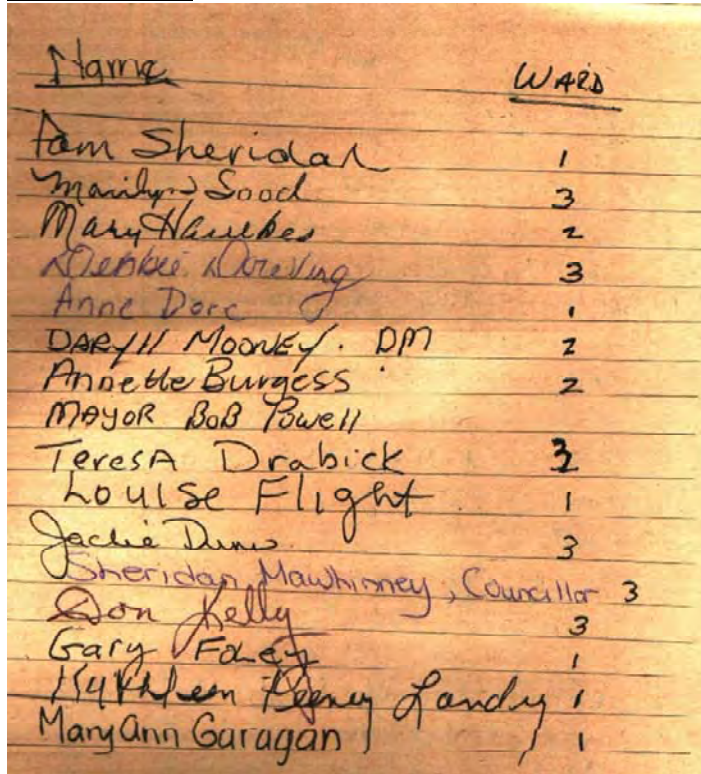 Name WARD
Pam Sheridan 1
Marilyn Sood 3
Mary Hawkes 2
Debbie 3
Anne Dore 1
DARyll MOONEY. DM 2
Annette Burgess 2
MAYOR BOB Powell
TeresA Drabick 3
Louise Flight 1
Jackie Dunn 3
Sheridan Mawhinney, Councillor 3
Don Kelly 3
Gary Foley 1
Kathleen Feeney Landry 1
Mary Ann Garagan 1